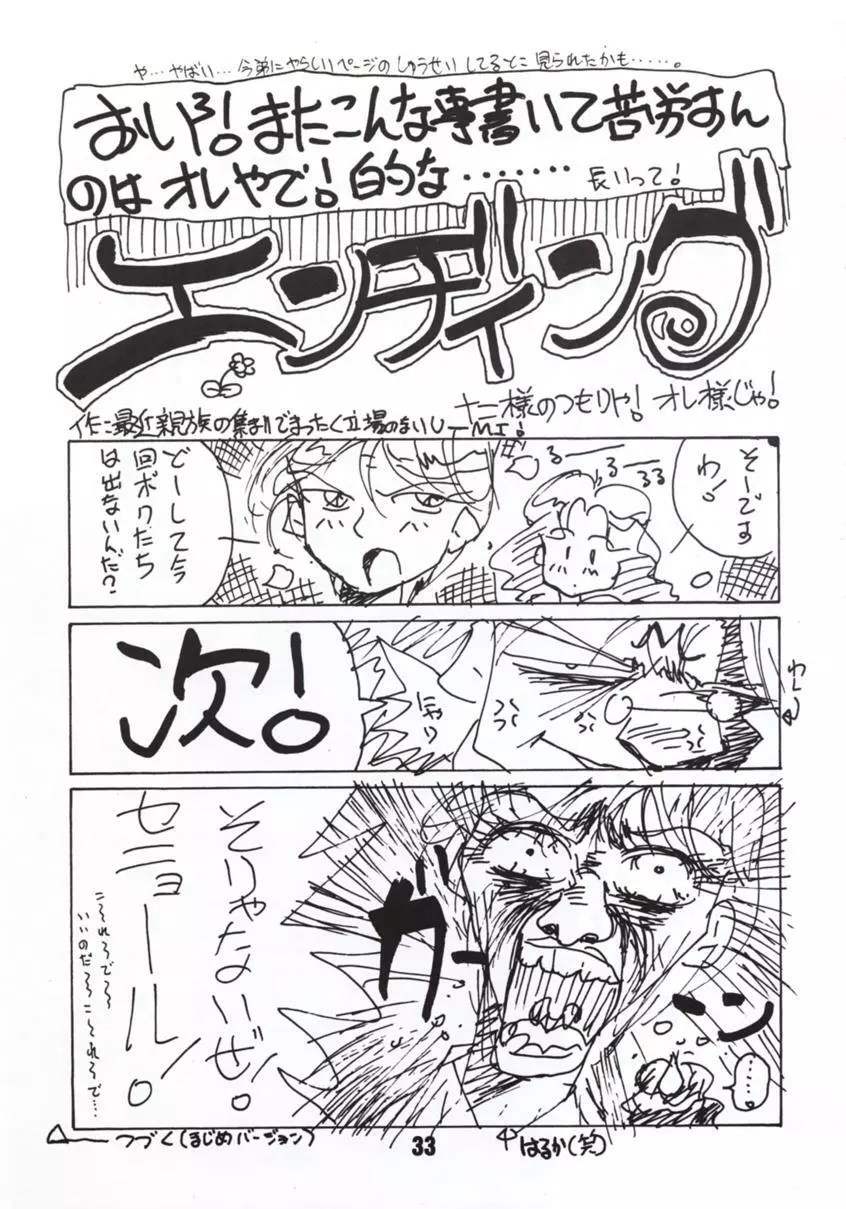 や…やばい…今弟にやらしいページのしゅうせいしてるとこ見られたかも……。
おいろ!またこんな事書いて苦労すん
のはオレやで!的な………
長いって!
エンディング
十二様のつもりや!オレ様じゃ!
作:最近親族の集まりでまったく立場のないU-MI!
そーです
わ!
るーーーるーーーるる
どーして今
回ボクたち
は出ないんだ?
次!
にやり
わーん
そりゃないぜ!
セニョール。
こ〜れろでろ〜
いいのだろ〜こ〜れろで…
ガーー
……
つづく(まじめバージョン)
33
はるか(笑)